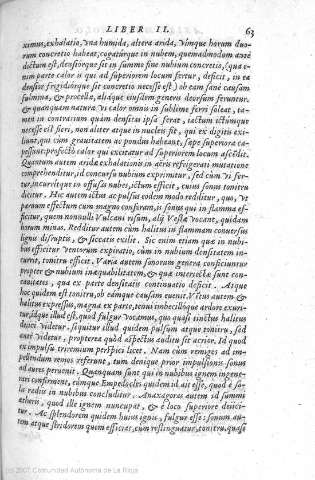 LIBER II. 63
ximus, exhalatio, vna humida, altera arida. Vimque horum duo-
rum concretio habeat, cogaturque in nubem, quemadmodum ante
dictum est, densiorque sit in summo fine nubium concretio, (qua e-
nim parte calor is qui ad superiorem locum fertur, deficit, in ea
densior frigidiorque sit concretio necesse est) ob eam sane causam
fulmina, & procella, aliaque eiusdem generis deorsum feruntur,
& quanquam natura vi calor omnis in sublime ferri soleat, ta-
men in contrarium quàm densitas ipsa ferat, iactum ictúmque
necesse est fieri, non aliter atque in nucleis fit, qui ex digitis exi-
liunt, qui cum grauitatem ac pondus habeant, sæpe superiora ca-
pessunt: profectò calor qui excitatur ad superiorem locum ascēdit.
Quantum autem aridæ exhalationis in aëris refrigerati mutatione
comprehenditur, id concursu nubium exprimitur, sed cùm vi fer-
tur, incurritque in offusas nubes, ictum efficit, cuius sonus tonitru
dicitur. Hic autem ictus ac pulsus eodem modo redditur, quo, vt
paruum effectum cum magno conferam, is sonus qui in flamma ef-
ficitur, quem nonnulli Vulcani risum, alij Vestæ vocant, quidem
horum minas. Redditur autem cùm halitus in flammam conuersus
lignis disruptis, & siccatis exilit. Sic enim etiam quæ in nubi-
bus efficitur ventorum expiratio, cùm in nubium densitatem in-
currit, tonitru efficit. Varia autem sonorum genera conficiuntur
propter & nubium inæquabilitatem, & quæ interiectæ sunt con-
cauitates, qua ex parte densitatis continuatio deficit. Atque
hoc quidem est tonitru, ob eamque causam euenit. Vitus autem &
halitus expressus, magna ex parte, tenui imbecillóque ardore exuri-
tur, idque illud est, quod fulgur vocamus, quo quasi tinctus halitus
deuci videtur, sequitur illud quidem pulsum atque tonitru, sed
ante videtur, propterea quòd aspectus auditu sit acrior. Id quod
ex impulsu triremium perspici licet. Nam cùm remiges ad im-
pellendum remos referunt, tum denique prior impulsionis sonus
ad aures peruenit. Quanquam sunt qui in nubibus ignem ingene-
rari confirment, eúmque Empedocles quidem id ait esse, quod è so-
lis radiis in nubibus concluditur. Anaxagoras autem id summi
ætheris, quod ille ignem nuncupat, & è loco superiore deiici-
tur. Ac splendorem quidem huius ignis, fulgur esse: sonum au-
tem atque stridorem quem efficias, cum restinguatur, tonitru, quasi
(c) 2007 Comunidad Autónoma de La Rioja